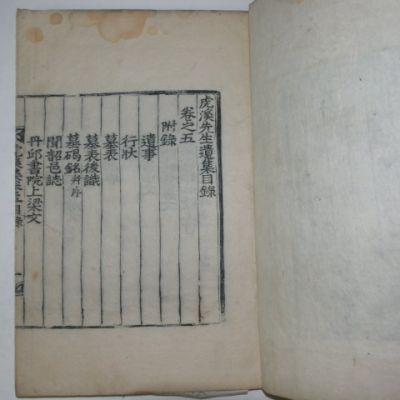 虎溪先生遺集目錄
卷之五
附錄
遺事
行狀
墓表
墓表後識
墓碣銘并序
聞韶邑誌
丹邱書院上梁文